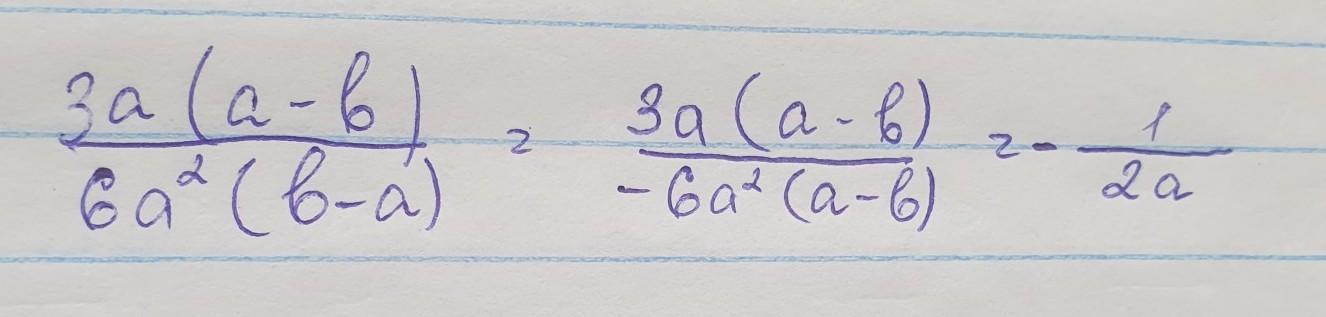 3a(a-b)/6a²(b-a) = 3a(a-b)/-6a²(a-b) = - 1/2a